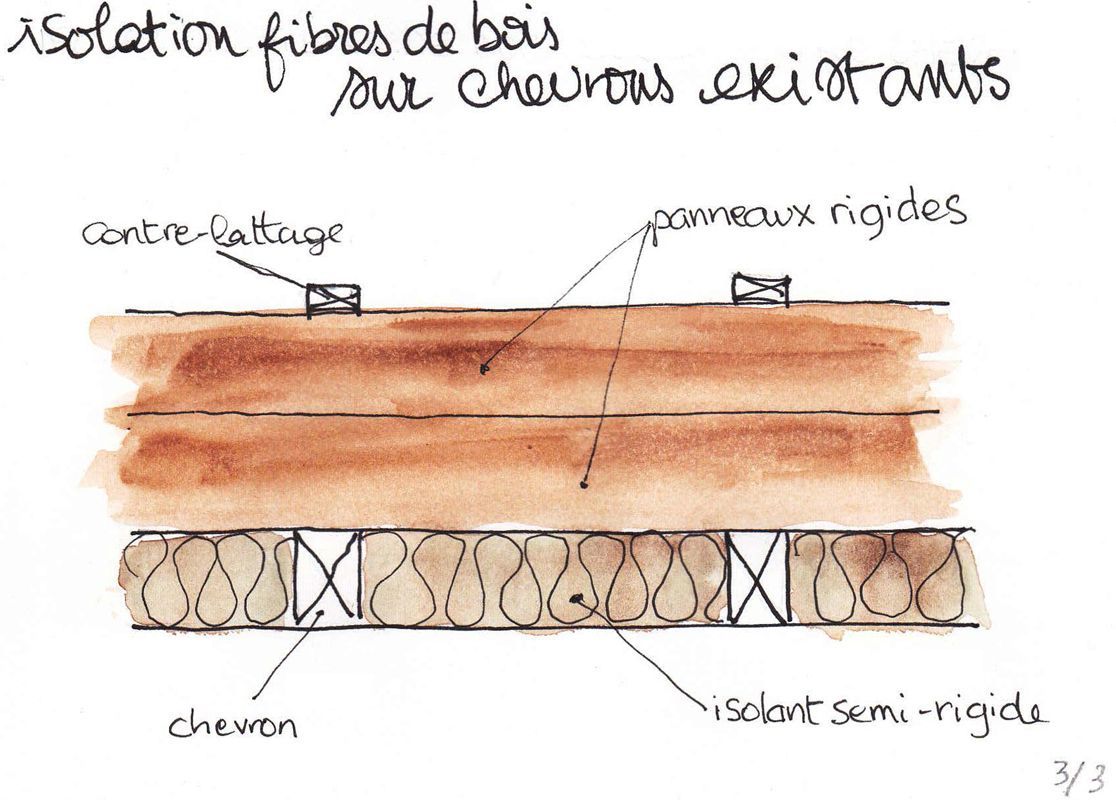 isolation fibres de bois
sur chevrons existants
contre-lattage
panneaux rigides
chevron
isolant semi-rigide
3/3